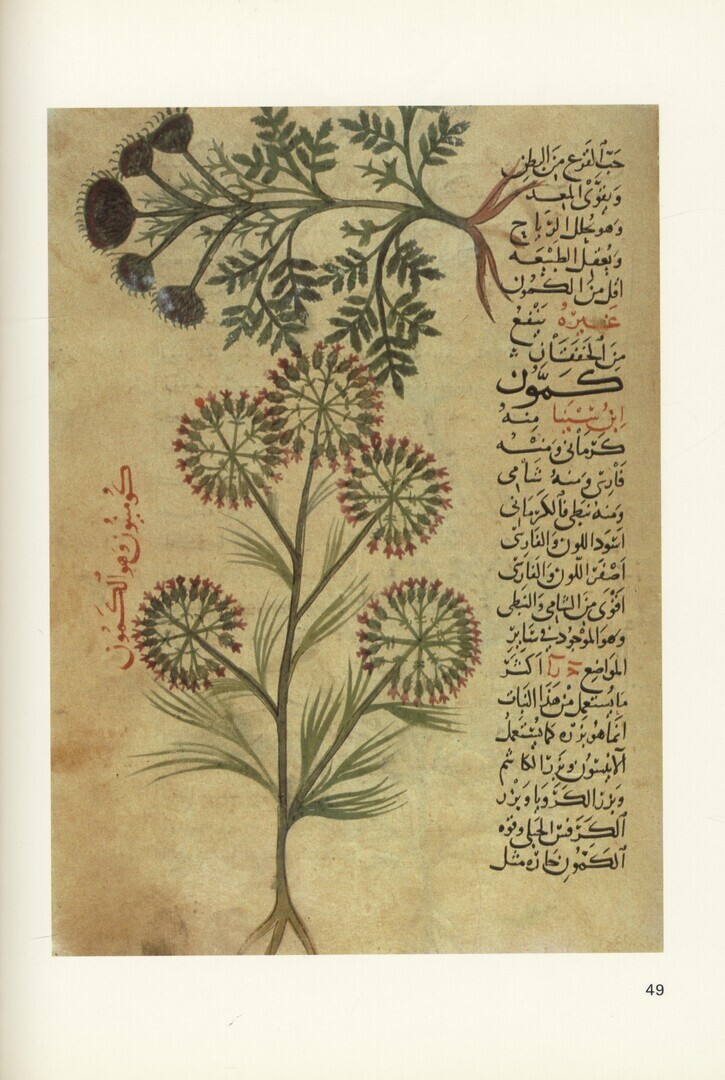 حب القرع من البطن
ويقوي المعده
وهو يحلل الرياح
ويعقل الطبيعه
اقل من الكمون
غيره ينفع
من الخفقان
كمّون
ابن سينا منه
كرماني ومنه
فارسي ومنه شامي
ومنه نبطي فالكرماني
اسود اللون والفارسي
اصفر اللون والفارسي
اقوى من الشامي والنبطي
وهو الموجود في ساير
المواضع اكثر
ما يستعمل من هذا النبات
انما هو بزره كما يستعمل
الانيسون وبزر الكاشم
وبزر الكرويا وبزر
الكرفس الجبلي وقوه
الكمون حاره مثل
كومينون وهو الكمون
49